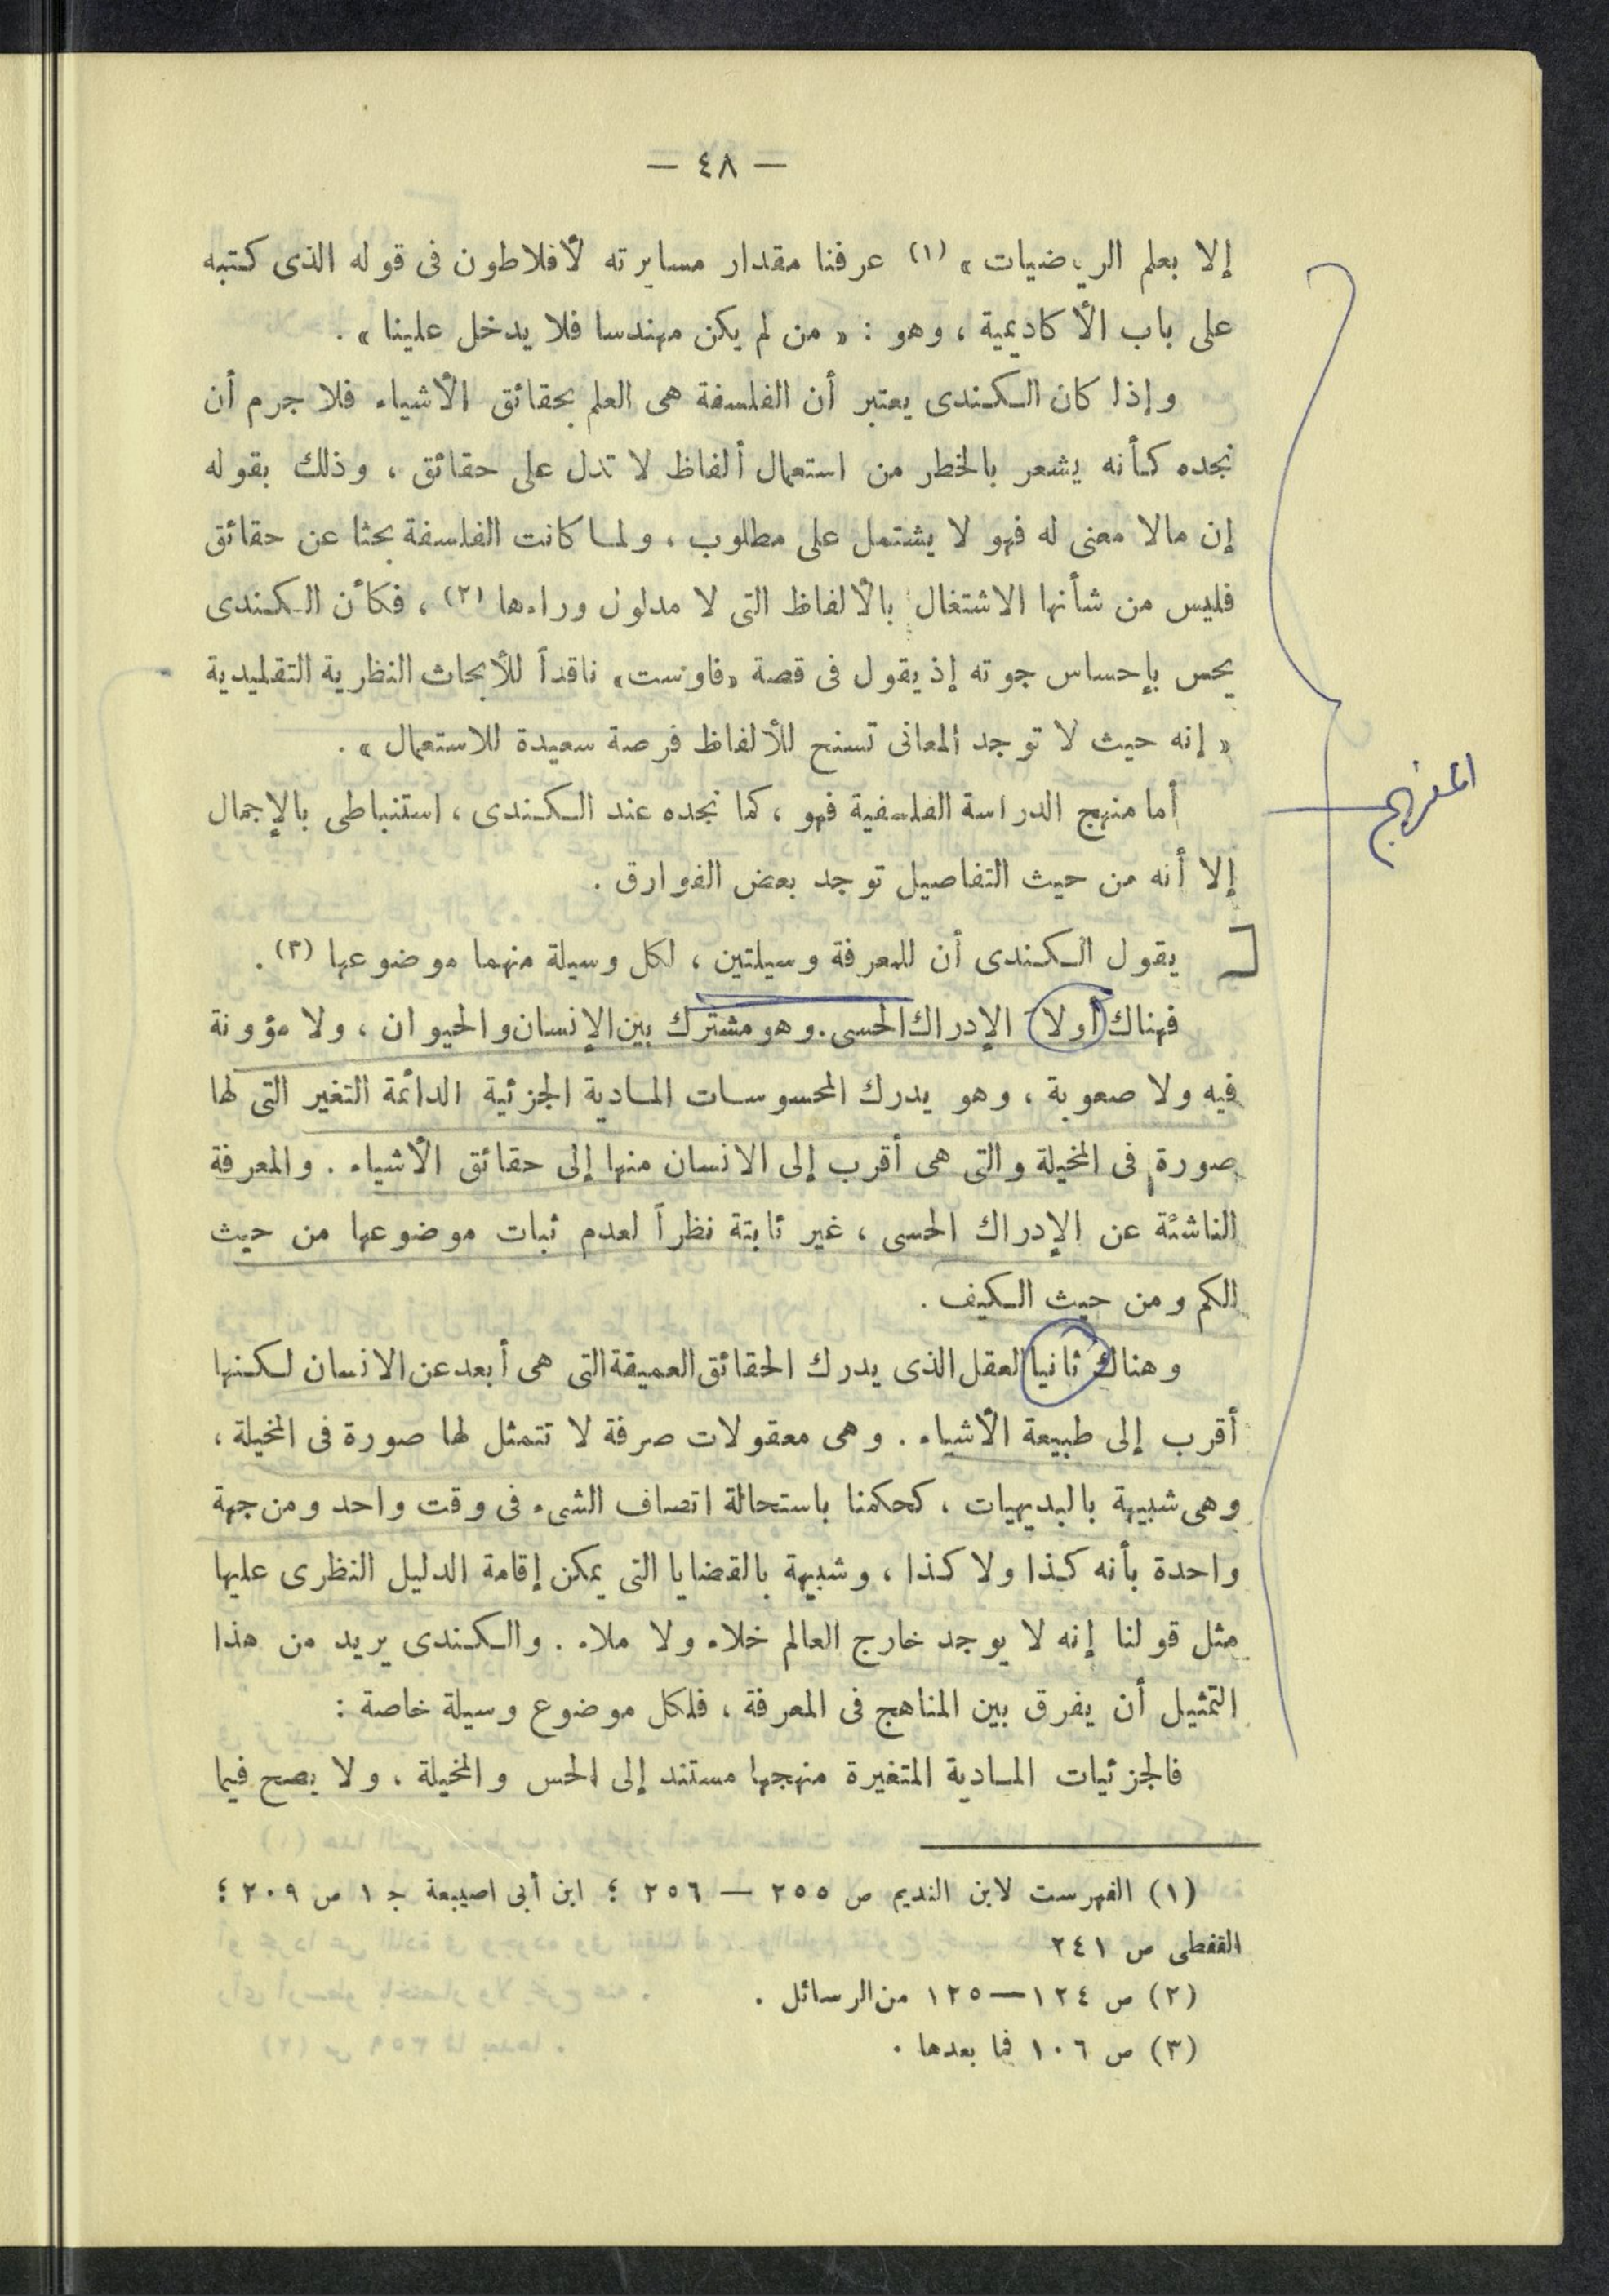 — ٤٨ —
إلا بعلم الرياضيات» (١) عرفنا مقدار مسايرته لأفلاطون فى قوله الذى كتبه
على باب الأكاديمية ، وهو : « من لم يكن مهندسا فلا يدخل علينا » .
وإذا كان الكندى يعتبر أن الفلسفة هى العلم بحقائق الأشياء فلا جرم أن
نجده كأنه يشعر بالخطر من استعمال ألفاظ لا تدل على حقائق ، وذلك بقوله
إن مالا معنى له فهو لا يشتمل على مطلوب ، ولما كانت الفلسفة بحثا عن حقائق
فليس من شأنها الاشتغال بالألفاظ التى لا مدلول وراءها (٢) ، فكأن الكندى
يحس بإحساس جوته إذ يقول فى قصة «فاوست» ناقداً للأبحاث النظرية التقليدية
« إنه حيث لا توجد المعانى تسنح للألفاظ فرصة سعيدة للاستعمال » .
المنهج
أما منهج الدراسة الفلسفية فهو ، كما نجده عند الكندى ، استنباطى بالإجمال
إلا أنه من حيث التفاصيل توجد بعض الفوارق .
يقول الكندى أن للمعرفة وسيلتين ، لكل وسيلة منهما موضوعها (٣) .
فهناك أولا الإدراك الحسى . وهو مشترك بين الإنسان والحيوان ، ولا مؤونة
فيه ولا صعوبة ، وهو يدرك المحسوسات المادية الجزئية الدائمة التغير التى لها
صورة فى المخيلة والتى هى أقرب إلى الانسان منها إلى حقائق الأشياء . والمعرفة
الناشئة عن الإدراك الحسى ، غير ثابتة نظراً لعدم ثبات موضوعها من حيث
الكم ومن حيث الكيف .
وهناك ثانيا العقل الذى يدرك الحقائق العميقة التى هى أبعد عن الانسان لكنها
أقرب إلى طبيعة الأشياء . وهى معقولات صرفة لا تتمثل لها صورة فى المخيلة ،
وهى شبيهة بالبديهيات ، كحكمنا باستحالة اتصاف الشىء فى وقت واحد ومن جهة
واحدة بأنه كذا ولا كذا ، وشبيهة بالقضايا التى يمكن إقامة الدليل النظرى عليها
مثل قولنا إنه لا يوجد خارج العالم خلاء ولا ملاء . والكندى يريد من هذا
التمثيل أن يفرق بين المناهج فى المعرفة ، فلكل موضوع وسيلة خاصة :
فالجزئيات المادية المتغيرة منهجها مستند إلى الحس والمخيلة ، ولا يصح فيما
(١) الفهرست لابن النديم ص ٢٥٥ — ٢٥٦ ؛ ابن أبى اصيبعة ج ١ ص ٢٠٩ ؛
القفطى ص ٢٤١
(٢) ص ١٢٤—١٢٥ من الرسائل .
(٣) ص ١٠٦ فما بعدها .